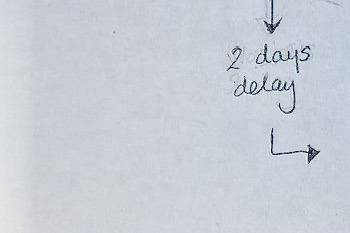 2 days
delay